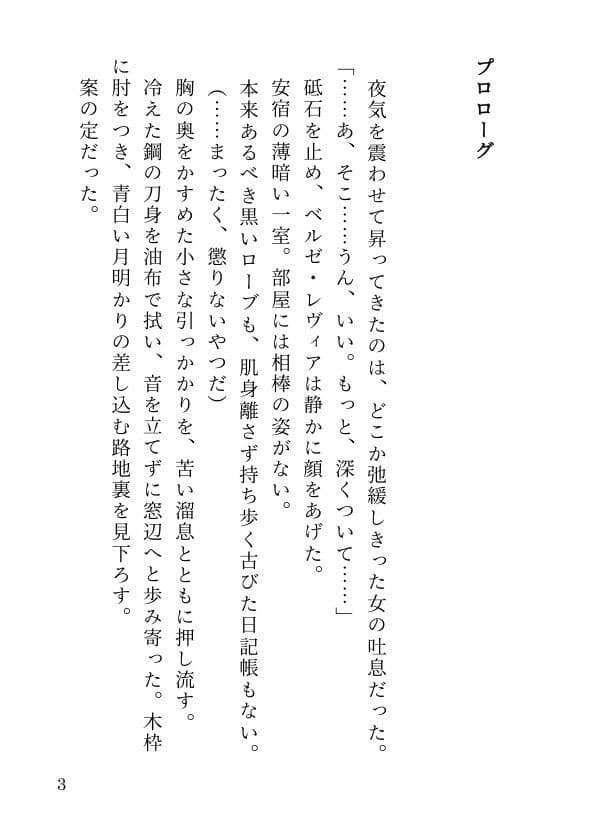 プロローグ
夜気を震わせて昇ってきたのは、どこか弛緩しきった女の吐息だった。
「……あ、そこ……うん、いい。もっと、深くついて……」
砥石を止め、ベルゼ・レヴィアは静かに顔をあげた。
安宿の薄暗い一室。部屋には相棒の姿がない。
本来あるべき黒いローブも、肌身離さず持ち歩く古びた日記帳もない。
（……まったく、懲りないやつだ）
胸の奥をかすめた小さな引っかかりを、苦い溜息とともに押し流す。
冷えた鋼の刀身を油布で拭い、音を立てずに窓辺へと歩み寄った。木枠
に肘をつき、青白い月明かりの差し込む路地裏を見下ろす。
案の定だった。
3